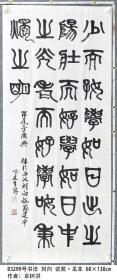 少而好學如日出之
陽壯而好學如日中
之光老而好學如炳
燭之明
83299号书法 刘向 说苑·见本 68×138cm
作者: